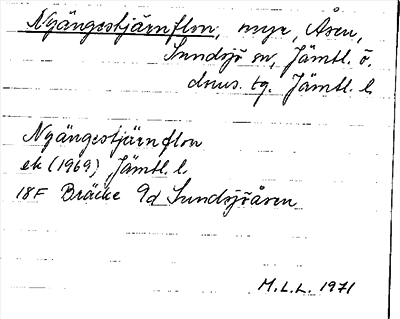 Nyängestjärnflon, myr, Åsen,
Sundsjö sn, Jämtl. ö.
doms. tg. Jämtl. l.
Nyängestjärnflon
ek (1969) Jämtl. l.
18F Bräcke 9d Sundsjöåsen
M.L.L. 1971